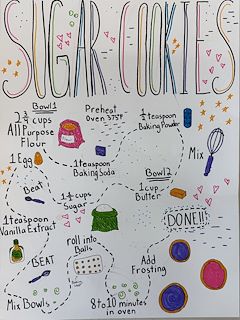 SUGAR COOKIES
Bowl 1
2 3/4 cups
All Purpose
Flour
Preheat
Oven 375°F
1/2 teaspoon
Baking Powder
1 Egg
1 teaspoon
Baking Soda
Mix
Beat
1 1/2 cups
Sugar
Bowl 2
1 cup
Butter
1 teaspoon
Vanilla Extract
DONE!!!
BEAT
roll into
Balls
Add
Frosting
Mix Bowls
8 to 10 minutes
in oven